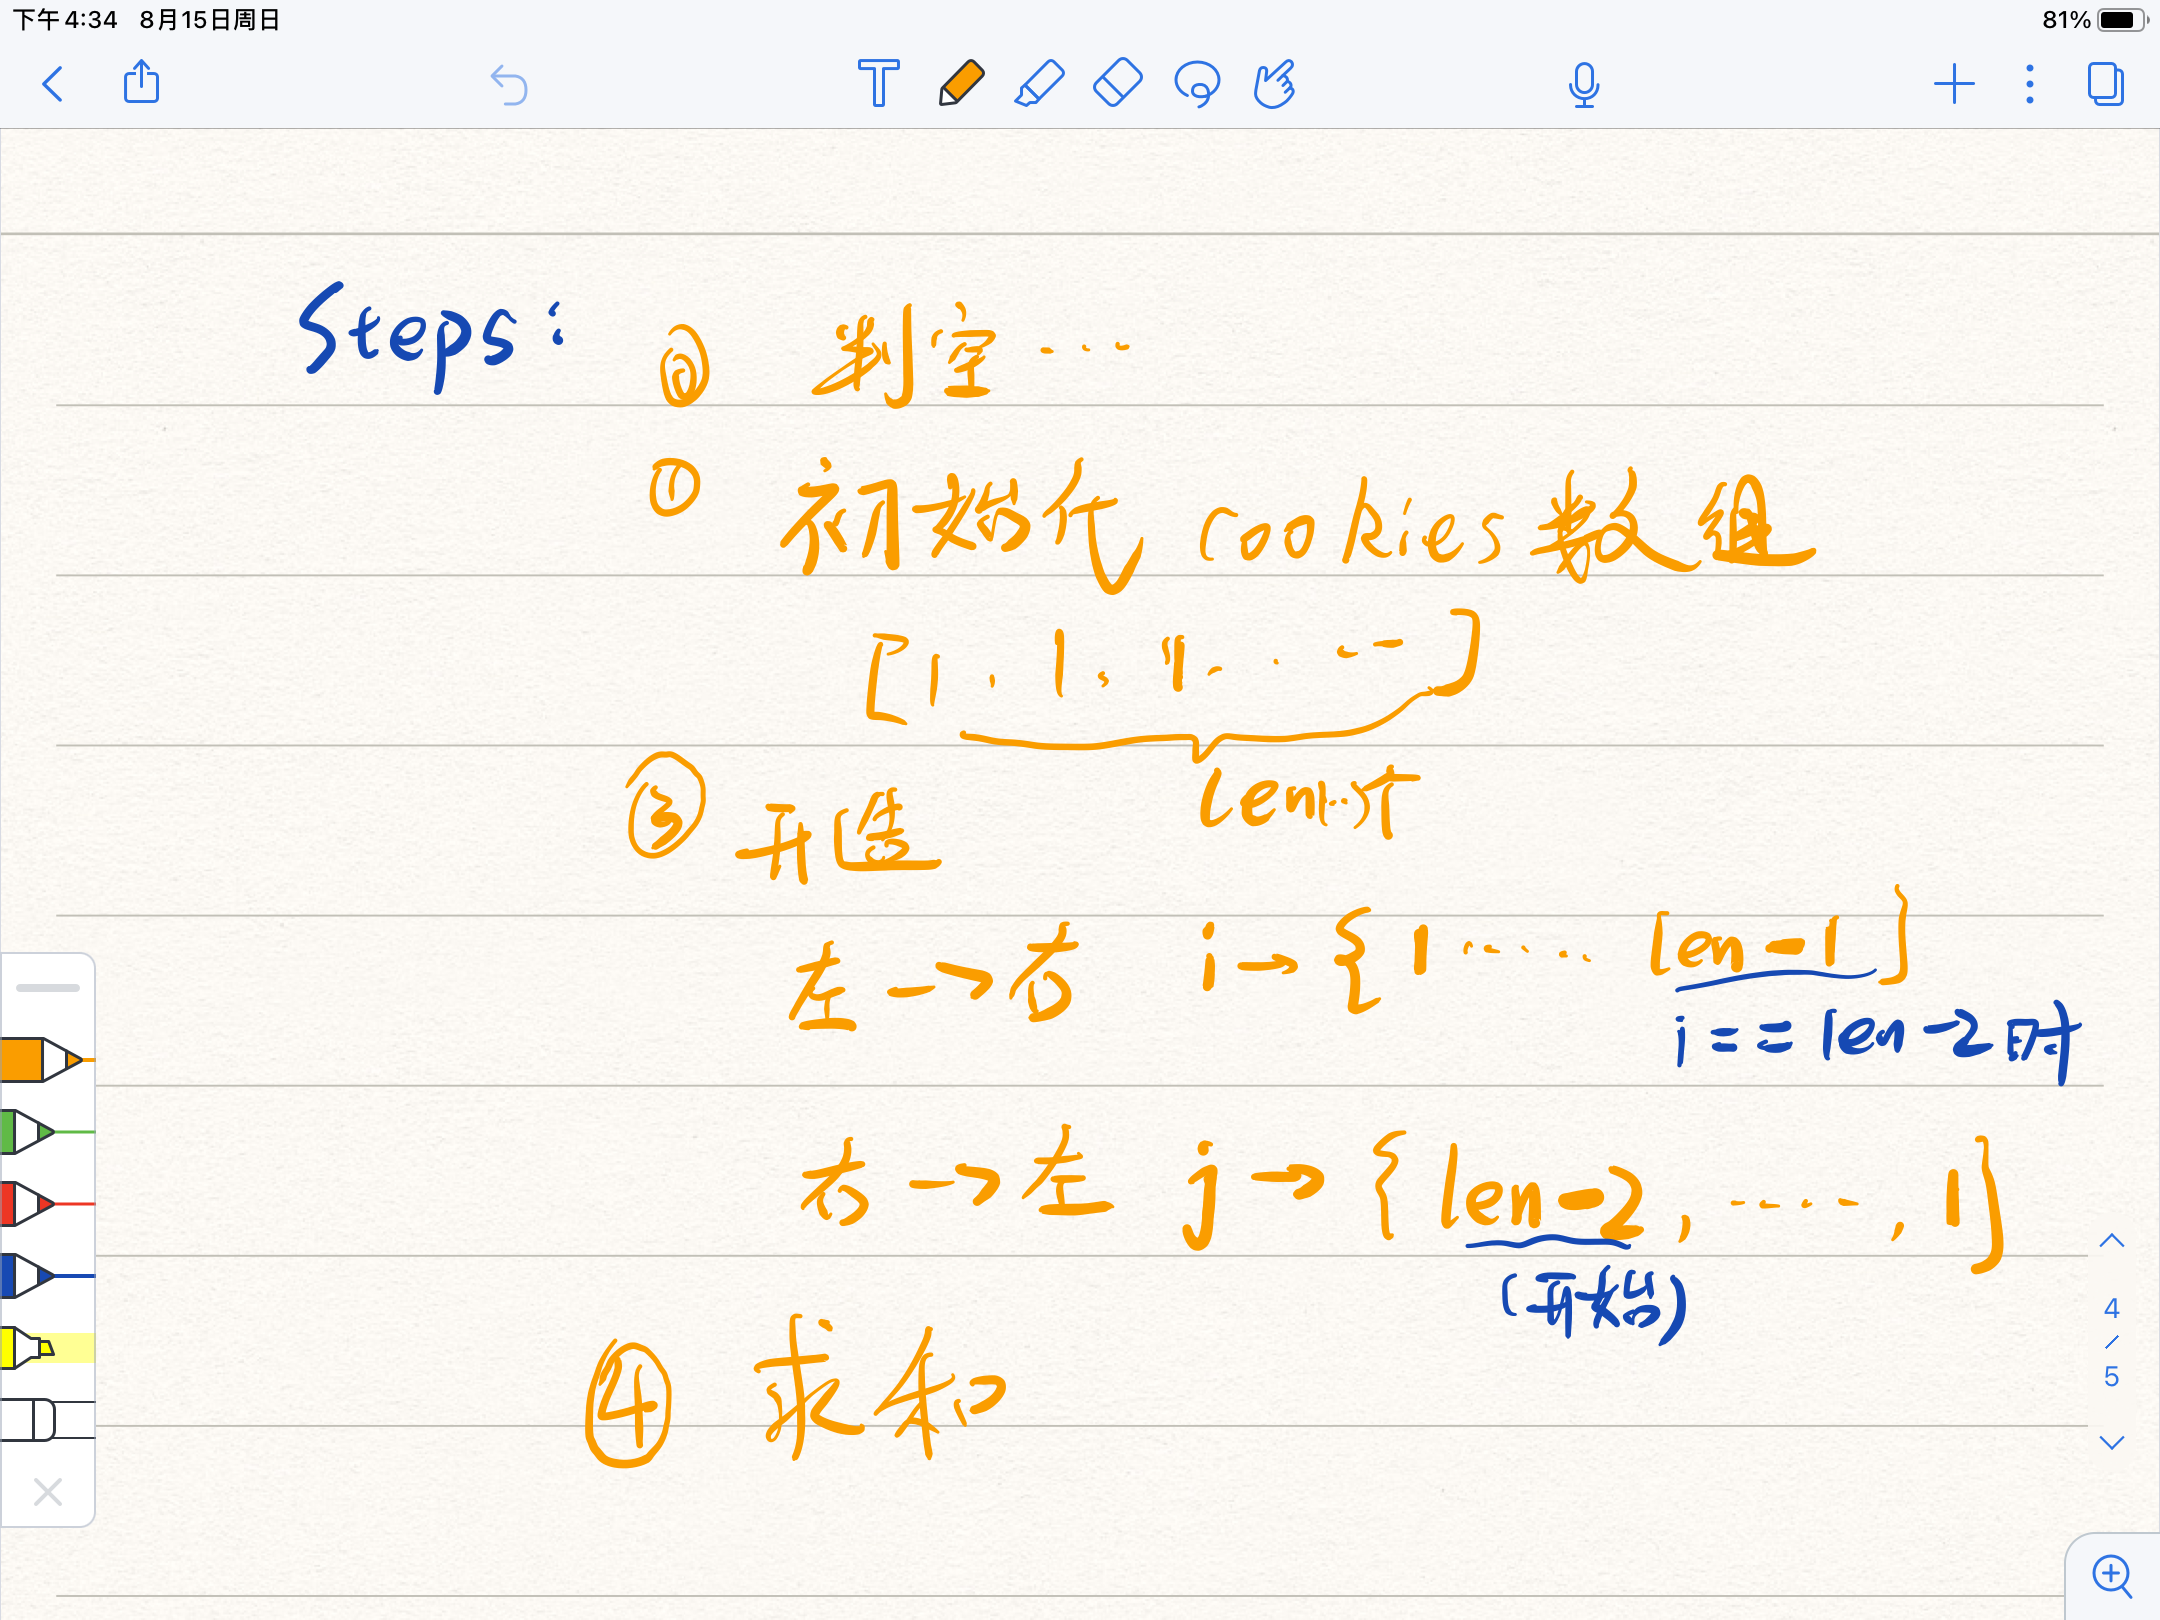 下午4:34 8月15日周日
81%
Steps: ⓪ 判空...
① 初始化 cookies 数组
[1, 1, 1, ......]
len(..)个
③ 开造
左→右 i→{1 ..... len-1}
i == len-2 时
右→左 j→{len-2, ....., 1}
(开始)
④ 求和
4
/
5